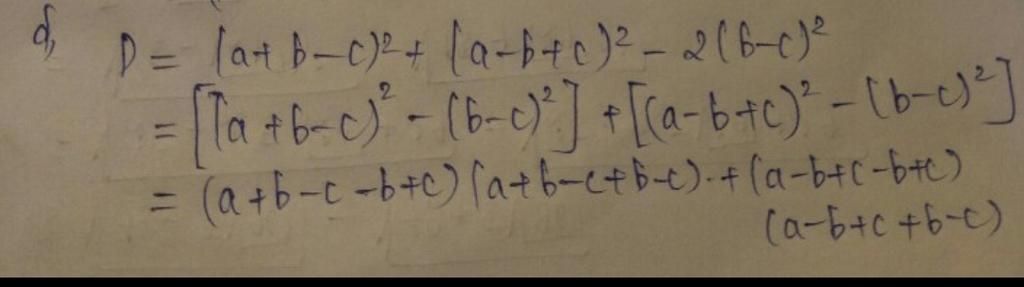 d, D = (a+b-c)² + (a-b+c)² - 2(b-c)²
= [(a+b-c)² - (b-c)²] + [(a-b+c)² - (b-c)²]
= (a+b-c-b+c)(a+b-c+b-c).+(a-b+c-b+c)
(a-b+c+b-c)